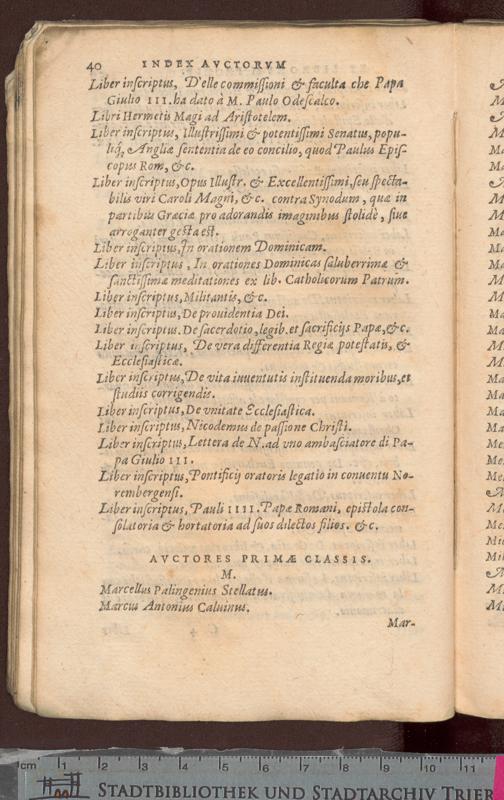 40 INDEX AVCTORVM
Liber inscriptus, D'elle commissioni & faculta che Papa
Giulio III. ha dato à M. Paulo Odescalco.
Libri Hermetis Magi ad Aristotelem.
Liber inscriptus, Illustrissimi & potentissimi Senatus, popu-
liq́; Angliæ sententia de eo concilio, quod Paulus Epis-
copus Rom, &c.
Liber inscriptus, Opus Illustr. & Excellentissimi, seu specta-
bilis viri Caroli Magni, &c. contra Synodum, quæ in
partibus Græciæ pro adorandis imaginibus stolidè, siue
arroganter gesta est.
Liber inscriptus, In orationem Dominicam.
Liber inscriptus, In orationes Dominicas saluberrimæ &
sanctissimæ meditationes ex lib. Catholicorum Patrum.
Liber inscriptus, Militantis, &c.
Liber inscriptus, De prouidentia Dei.
Liber inscriptus. De sacerdotio, legib. et sacrificijs Papæ, &c.
Liber inscriptus, De vera differentia Regiæ potestatis, &
Ecclesiasticæ.
Liber inscriptus, De vita iuuentutis instituenda moribus, et
studiis corrigendis.
Liber inscriptus, De vnitate Ecclesiastica.
Liber inscriptus, Nicodemus de passione Christi.
Liber inscriptus, Lettera de N. ad vno ambasciatore di Pa-
pa Giulio III.
Liber inscriptus, Pontificij oratoris legatio in conuentu No-
rembergensi.
Liber inscriptus, Pauli IIII. Papæ Romani, epistola con-
solatoria & hortatoria ad suos dilectos filios. &c.
AVCTORES PRIMÆ CLASSIS.
M.
Marcellus Palingenius Stellatus.
Marcus Antonius Caluinus.
Mar-
cm 1 2 3 4 5 6 7 8 9 10 11
STADTBIBLIOTHEK UND STADTARCHIV TRIER